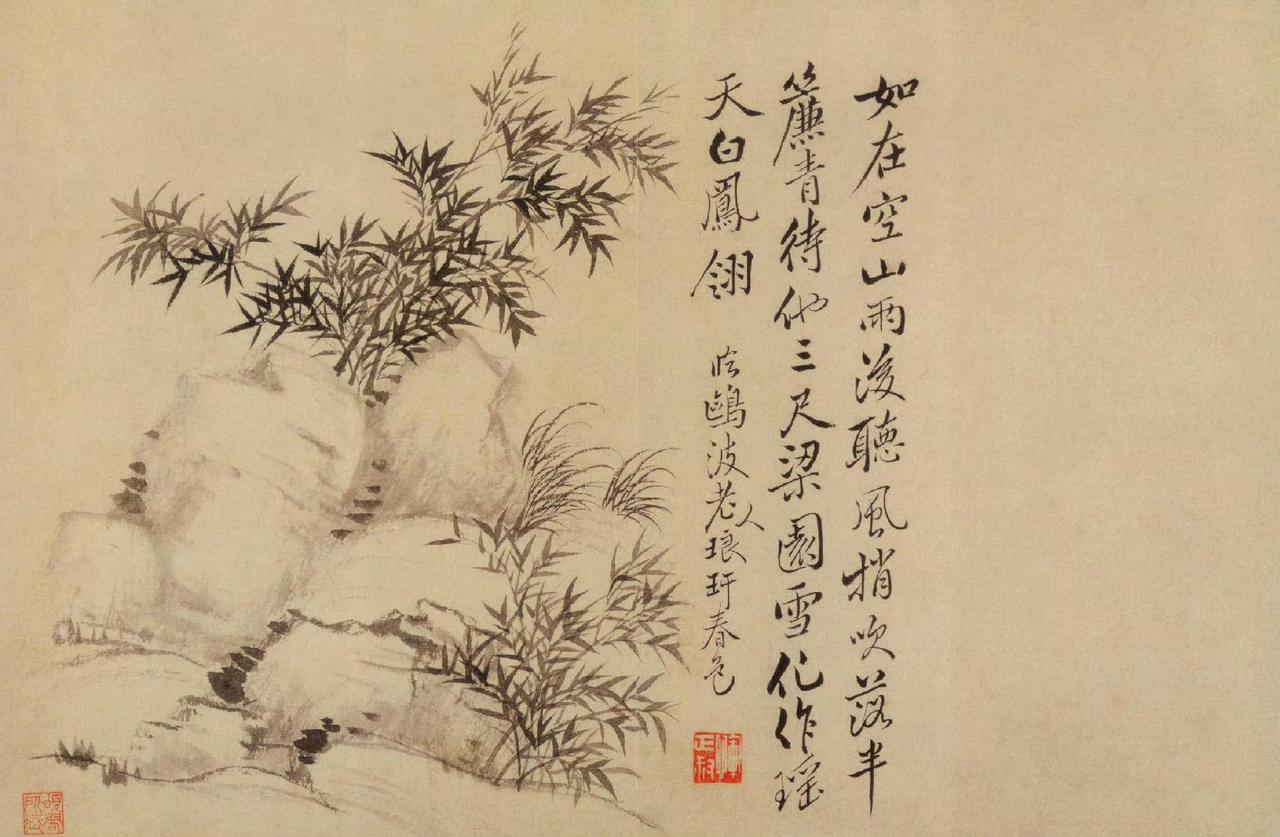 如在空山雨後聽風梢吹落半
簾青待他三尺梁園雪化作瑶
天白鳳翎
临鷗波老人琅玕春色